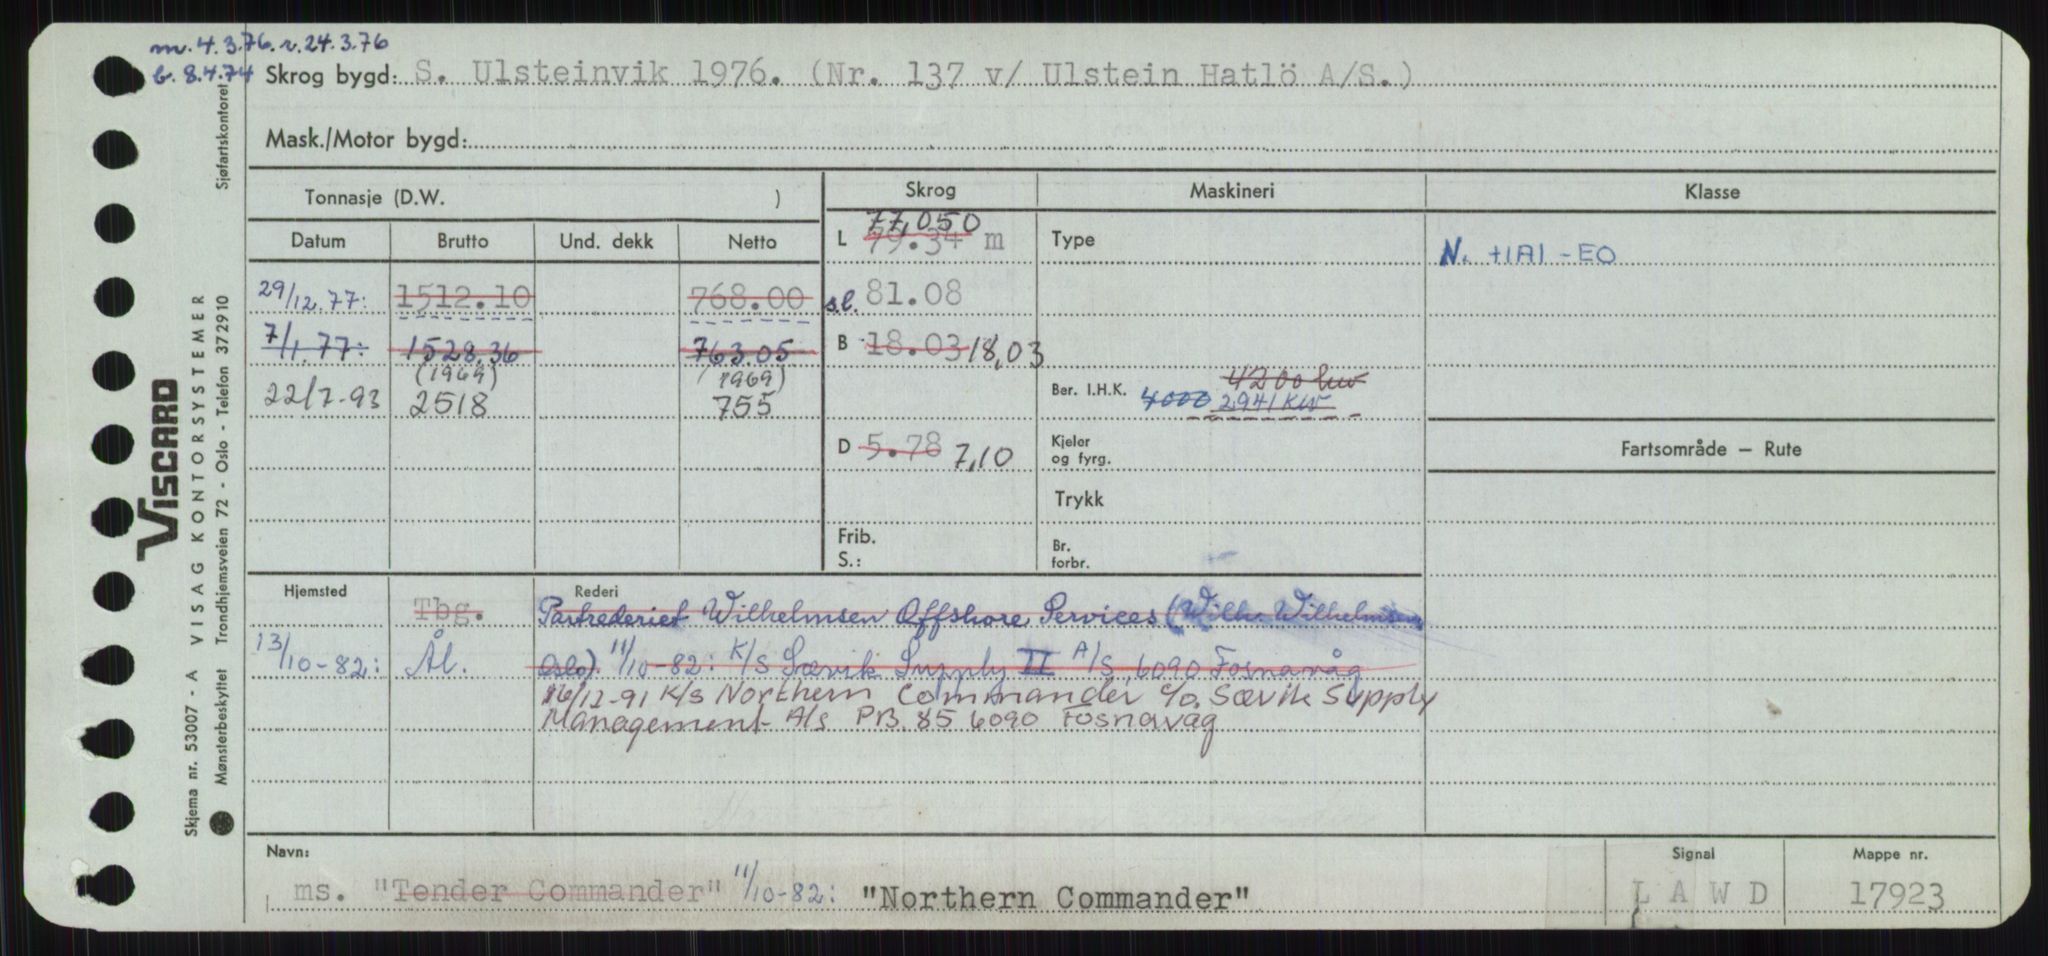 m. 4.3.76. r. 24.3.76
b. 8.4.74 Skrog bygd: S. Ulsteinvik 1976. (Nr. 137 v/ Ulstein Hatlö A/S.)
Mask./Motor bygd:
Tonnasje (D.W. )
Skrog
Maskineri
Klasse
Datum Brutto Und. dekk Netto
L 77,050
79.34 m
Type
N. +1A1 - EO
29/12.77: 1512.10 768.00
s.l. 81.08
7/1.77: 1528.36 763.05
B 18.03 18,03
(1969) (1969)
22/7-93 2518 755
Ber. I.H.K. 4000 4200 hk
2941 KW
D 5.78 7,10
Kjeler
og fyrg.
Fartsområde — Rute
Trykk
Frib.
S.:
Br.
forbr.
Hjemsted
Rederi
Tbg. Partrederiet Wilhelmsen Offshore Services (Wilh. Wilhelmsen
13/10-82: Ål. Oslo). 11/10-82: K/S Sævik Supply II A/S, 6090 Fosnavåg
16/12-91 K/S Northern Commander c/o. Sævik Supply
Management A/s PB. 85 6090 Fosnavag
Navn:
Signal
Mappe nr.
ms. "Tender Commander" 11/10-82: "Northern Commander"
L A W D
17923
VISCARD
Skjema nr. 53007 - A VISAG KONTORSYSTEMER
Mønsterbeskyttet Trondhjemsveien 72 - Oslo - Telefon 372910 Sjøfartskontoret